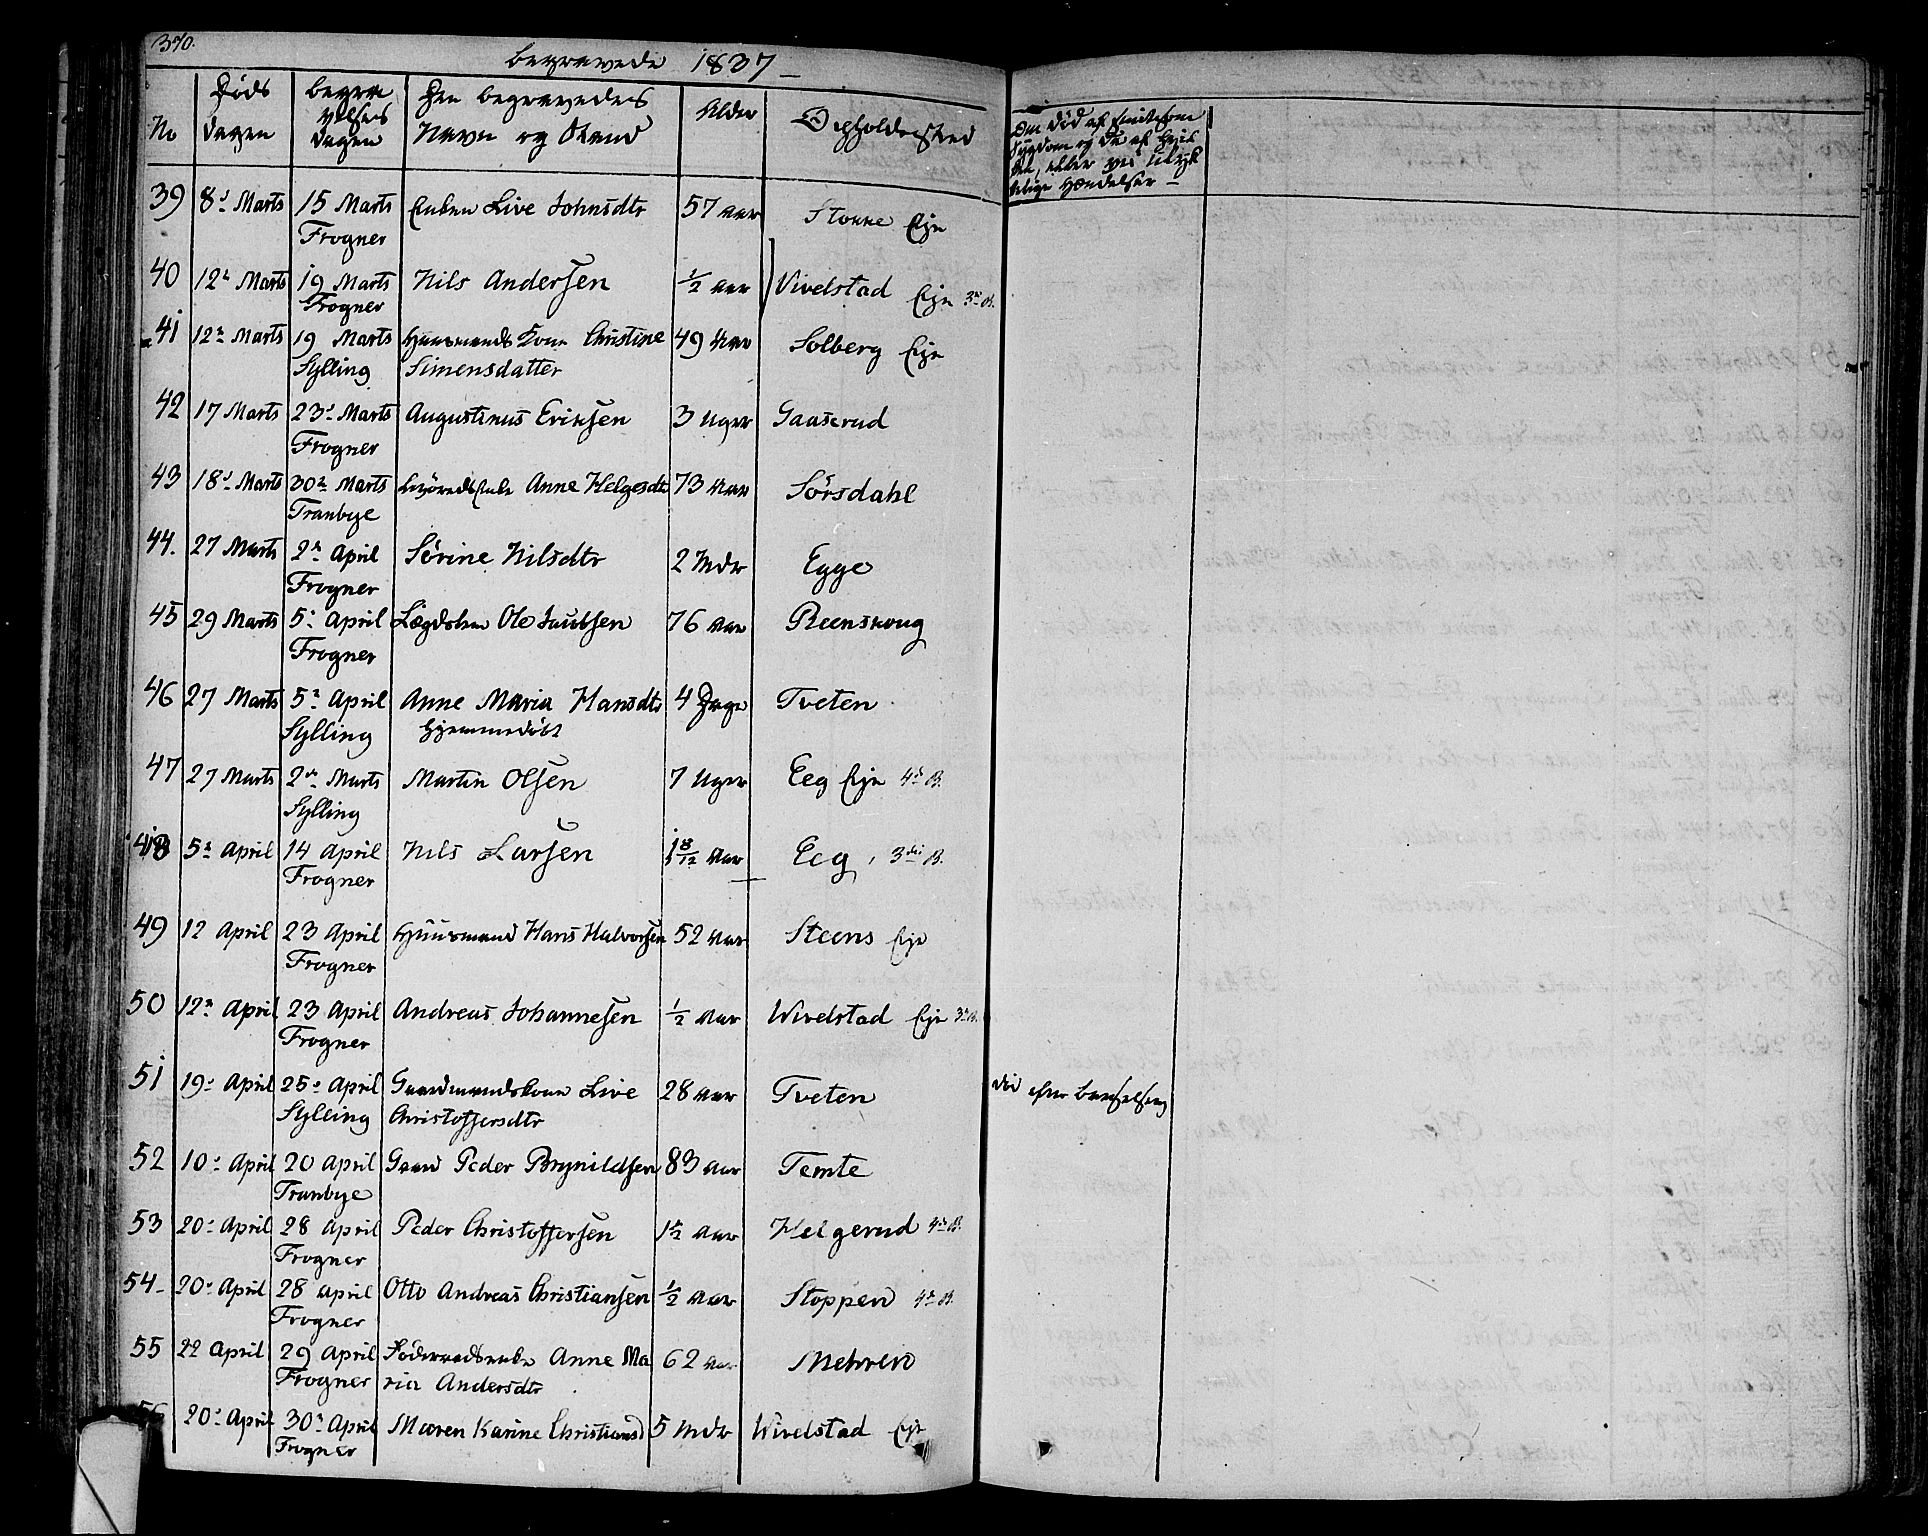 370.
begravede 1837
No
Døds Dagen
begravelses Dagen
Den begravedes Navn og Stand
Alder
Opholdssted
Om død af smitsom
Sygdom og da af hvil
ken, eller ved ulyk
kelige Hændelser
39 8de Marts 15 Marts Enken Live Johnsdtr 57 aar Stokke Eje
Frogner
40 12te Marts 19 Marts Nils Andersen 1/2 aar Vivelstad Eje 3die B.
Frogner
41 12te Marts 19 Marts Huusmands Kone Christine 49 Aar Solberg Eje
Sylling Simensdatter
42 17 Marts 23de Marts Augustinus Eriksen 3 Uger Gaaserud
Frogner
43 18de Marts 30te Marts Anne Helgesdtr 73 Aar Sörsdahl
Tranbye
44. 27 Marts 2den April Sörine Nilsdtr 2 Mdr Egge
Frogner
45 29 Marts 5te April Lægdslem Ole Jacobsen 76 Aar Reenskoug
Frogner
46 27 Marts 5te April Anne Maria Hansdtr 4 Dage Tveten
Sylling hjemmedöbt
47 27 Marts 2den Marts Martin Olsen 7 Uger Eeg Eje 4de B.
Sylling
48 5te April 14 April Nils Larsen 1 8/12 Aar Eeg, 3die B.
Frogner
49 12 April 23 April Huusmand Hans Halvorsen 52 Aar Steens Eje
Frogner
50 12te April 23 April Andreas Johannesen 1/2 Aar Wivelstad Eje 3die B.
Frogner
51 19de April 25de April Gaardmandskone Live 28 aar Tveten död efter Barselseng
Sylling Christoffersdtr
52 10de April 20 April Gaard Peder Brynildsen 83 aar Temte
Tranbye
53 20de April 28 April Peder Christoffersen 1 1/2 aar Helgerud 4de B.
Frogner
54 20de April 28 April Otto Andreas Christiansen 1/2 aar Stoppen 4de B.
Frogner
55 22 April 29 April Föderaadsenke Anne Ma 62 aar Mehren
Frogner ria Andersdtr
56 20de April 30te April Maren Karine Christiansd 5 Mdr Wivelstad Eje
Frogner